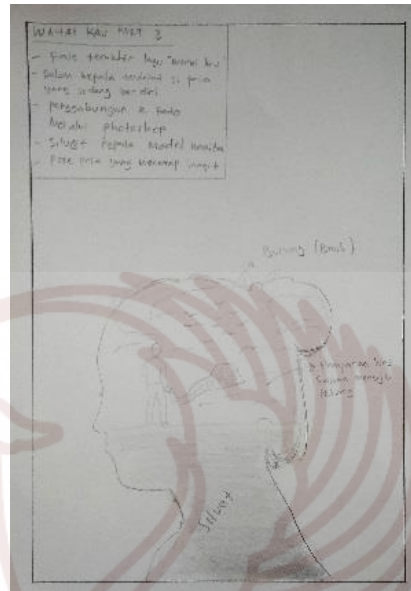 WAHAI KAU PART 3
- Fase terakhir lagu "wahai kau"
- Dalam kepala terdapat si pria
yang sedang berdiri
- Penggabungan 2 Foto
Melalui photoshop
- Siluet kepala Model wanita
- Pose pria yang menatap langit
Burung (Brush)
hamparan
menuju
Siluet